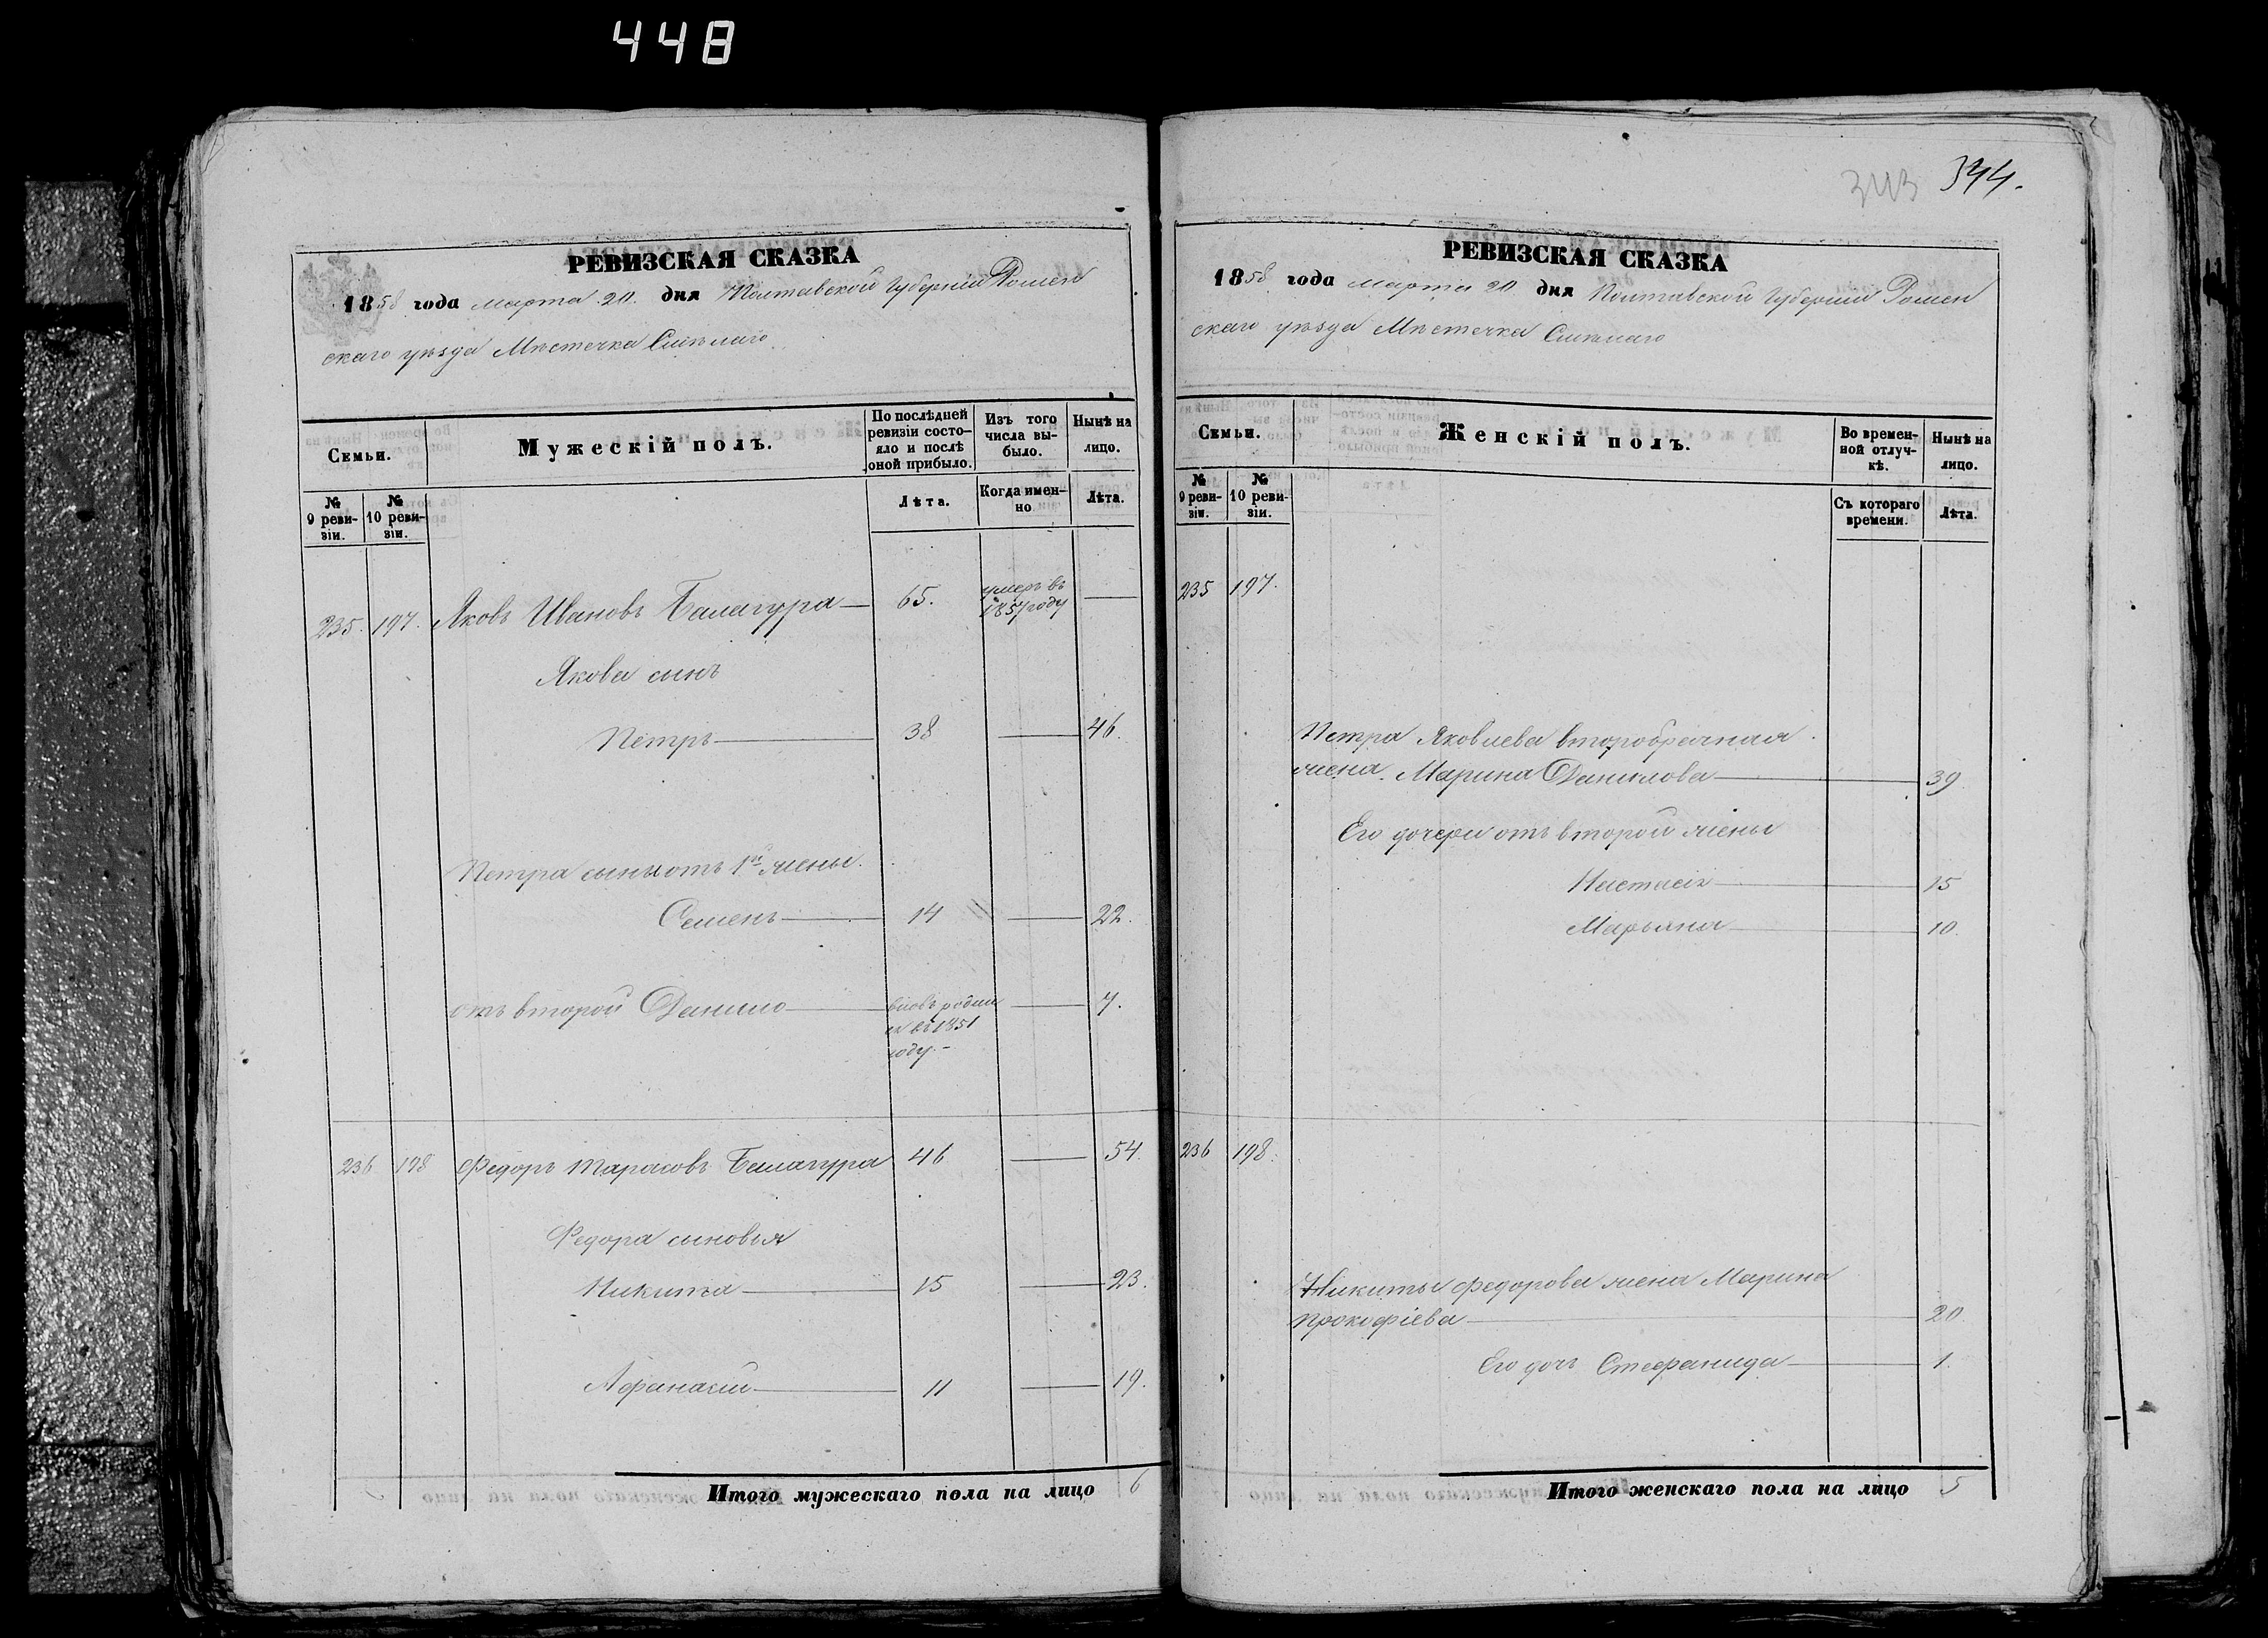 448
РЕВИЗСКАЯ СКАЗКА
1858 года марта 20. дня Полтавской Губерніи Ромен
скаго уѣзда Мѣстечка Смѣлаго
Семьи.
Мужескій полъ.
По послѣдней ревизіи состояло и послѣ оной прибыло.
Изъ того числа выбыло.
Нынѣ на лицо.
№ 9 ревизіи.
№ 10 ревизіи.
Лѣта.
Когда именно
Лѣта.
235. 197. Яковъ Ивановъ Балагура 65. умеръ въ 1857 году
Якова сынъ
Петръ 38 46.
Петра сыны отъ 1й жены.
Семенъ 14 22.
отъ второй Данило вновь родился въ 1851 году.- 7.
236 198 Федоръ Тарасовъ Балагура 46 54.
Федора сыновья
Никита 15 23.
Афанасій 11 19.
Итого мужескаго пола на лицо 6
343 344.
РЕВИЗСКАЯ СКАЗКА
1858 года марта 20 дня Полтавской Губерніи Ромен
скаго уѣзда Мѣстечка Смѣлаго
Семьи.
Женскій полъ.
Во временной отлучкѣ.
Нынѣ на лицо.
№ 9 ревизіи.
№ 10 ревизіи.
Съ котораго времени.
Лѣта.
235 197.
Петра Яковлева второбрачная
жена Марина Данилова 39
Его дочери отъ второй жены
Настасія 15
Марьяна 10.
236 198.
Никиты Федорова жена Марина
Прокофіева 20.
Его дочь Стефанида 1.
Итого женскаго пола на лицо 5